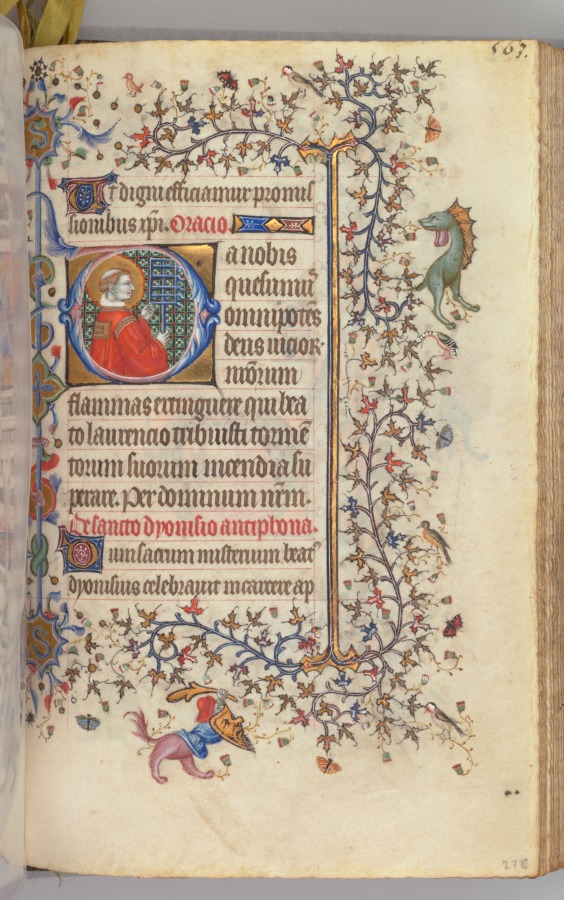 563.
Et digni efficiamur promis
sionibus xpi. Oracio.
Da nobis
quesumus
omnipotēs
deus uicior
nrōrum
flammas extinguere qui bea
to laurencio tribuisti tormē
torum suorum incendia su
perare. Per dominum nrm̄.
De sancto dyonisio antiphona.
Cum sacrum misterium beat9
dyonisius celebraret in carcere ap
278